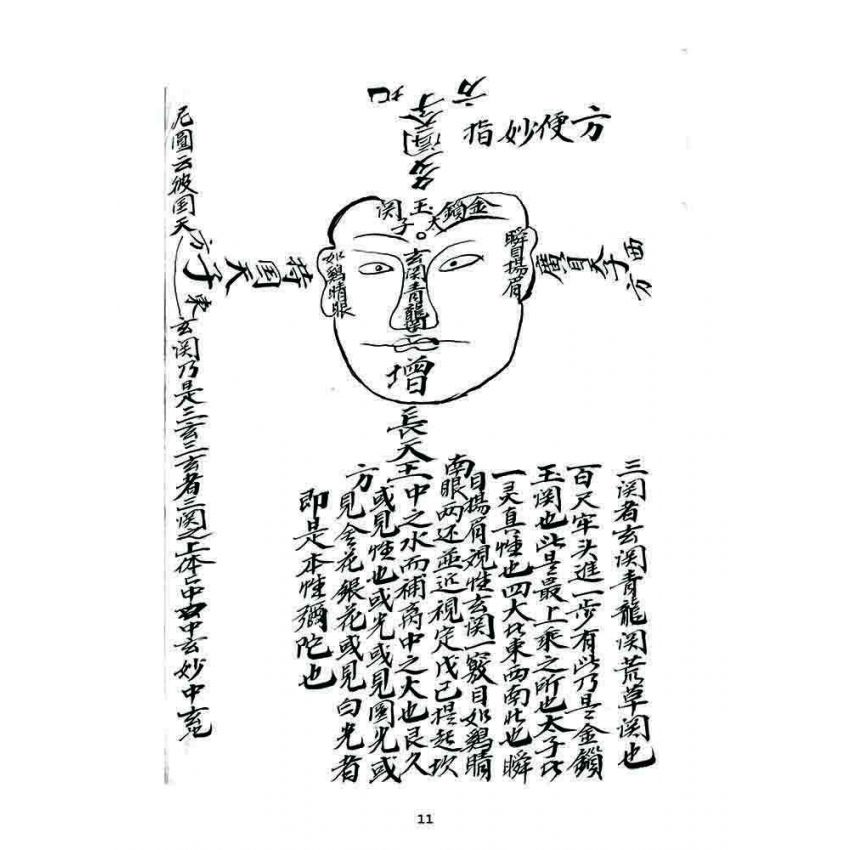 方便妙指
多聞天
北
方
金鎖玉関
太子
瞬目揚眉
如鷄睛眼
玄関青龍
西方
廣目天子
東方
持国天子
增長天王
南方
三関者玄関青龍関荒草関也
百尺牢头進一步有此乃是金鎖
玉関也此是最上乘之所也太子比
一灵真性也四大比東西南北也瞬
目揚眉視性玄関一竅目如鷄睛
眼两还並近視定戊己提起坎
中之水而補离中之大也良久
或見性也或光或見圓光或
見金花銀花或見白光者
即是本性彌陀也
尼圓云彼国天
玄関乃是三玄三玄者三関之上体
中玄妙中
11